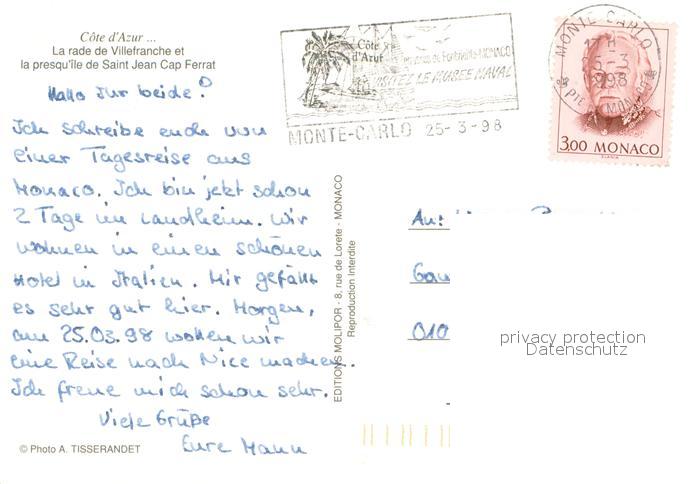 Côte d'Azur ...
La rade de Villefranche et
la presqu'île de Saint Jean Cap Ferrat
Hallo Ihr beide!
Ich schreibe euch von
einer Tagesreise aus
Monaco. Ich bin jetzt schon
2 Tage im Landheim. Wir
wohnen in einen schönen
Hotel in Italien. Mir gefällt
es sehr gut hier. Morgen,
am 25.03.98 wollen wir
eine Reise nach Nice machen.
Ich freue mich schon sehr.
Viele Grüße
Eure
© Photo A. TISSERANDET
EDITIONS MOLIPOR - 8, rue de Lorete - MONACO
Reproduction Interdite
Côte
d'Azur
MONACO
VISITEZ LE MUSEE NAVAL
MONTE-CARLO 25-3-98
MONTE-CARLO
17H
25-3
1998
MONACO
3,00 MONACO
An:
010
privacy protection
Datenschutz